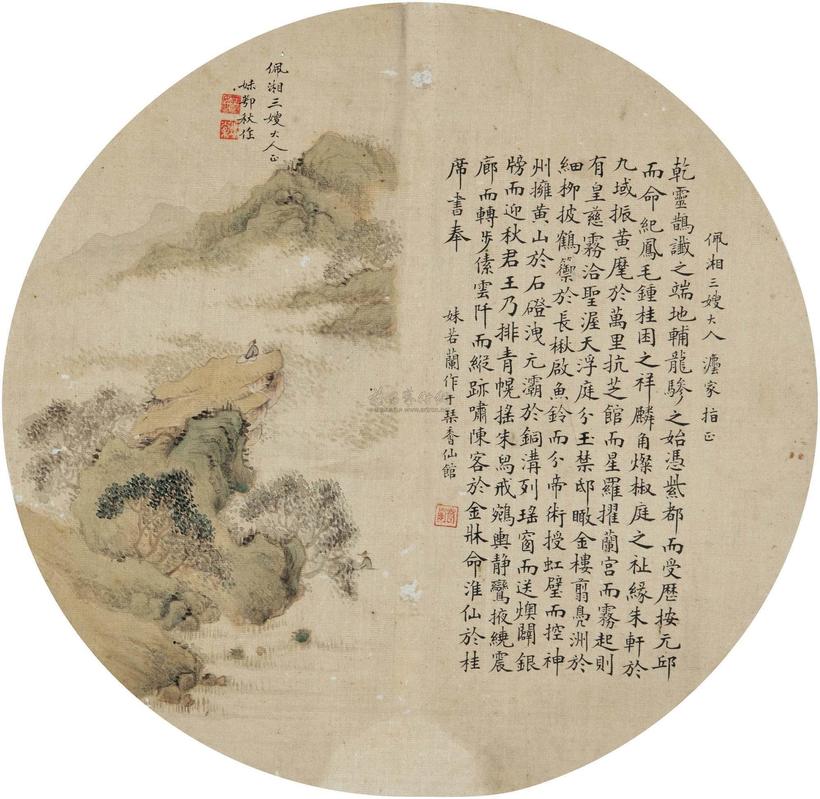 佩湘三嫂大人　灋家指正
乾靈鵲讖之端地輔龍驂之始憑紫都而受歷按元邱
而命紀鳳毛鍾桂囷之祥麟角燦椒庭之祉緣朱軒於
九域振黃麾於萬里抗芝館而星羅擢蘭宮而霧起則
有皇慈霧洽聖渥天浮庭分玉禁邸瞰金樓翦鳧洲於
細柳披鶴籞於長楸啟魚鈴而分帝術授虹璧而控神
州擁黃山於石磴洩元灞於銅溝列瑤窗而送燠闢銀
牓而迎秋君王乃排青幌搖朱舄戒鵷輿靜鸞掖繞震
廊而轉步傃雲阡而縱跡嘯陳客於金牀命淮仙於桂
席書奉
妹若蘭作于琹香仙館
佩湘三嫂大人正
妹鄂秋作